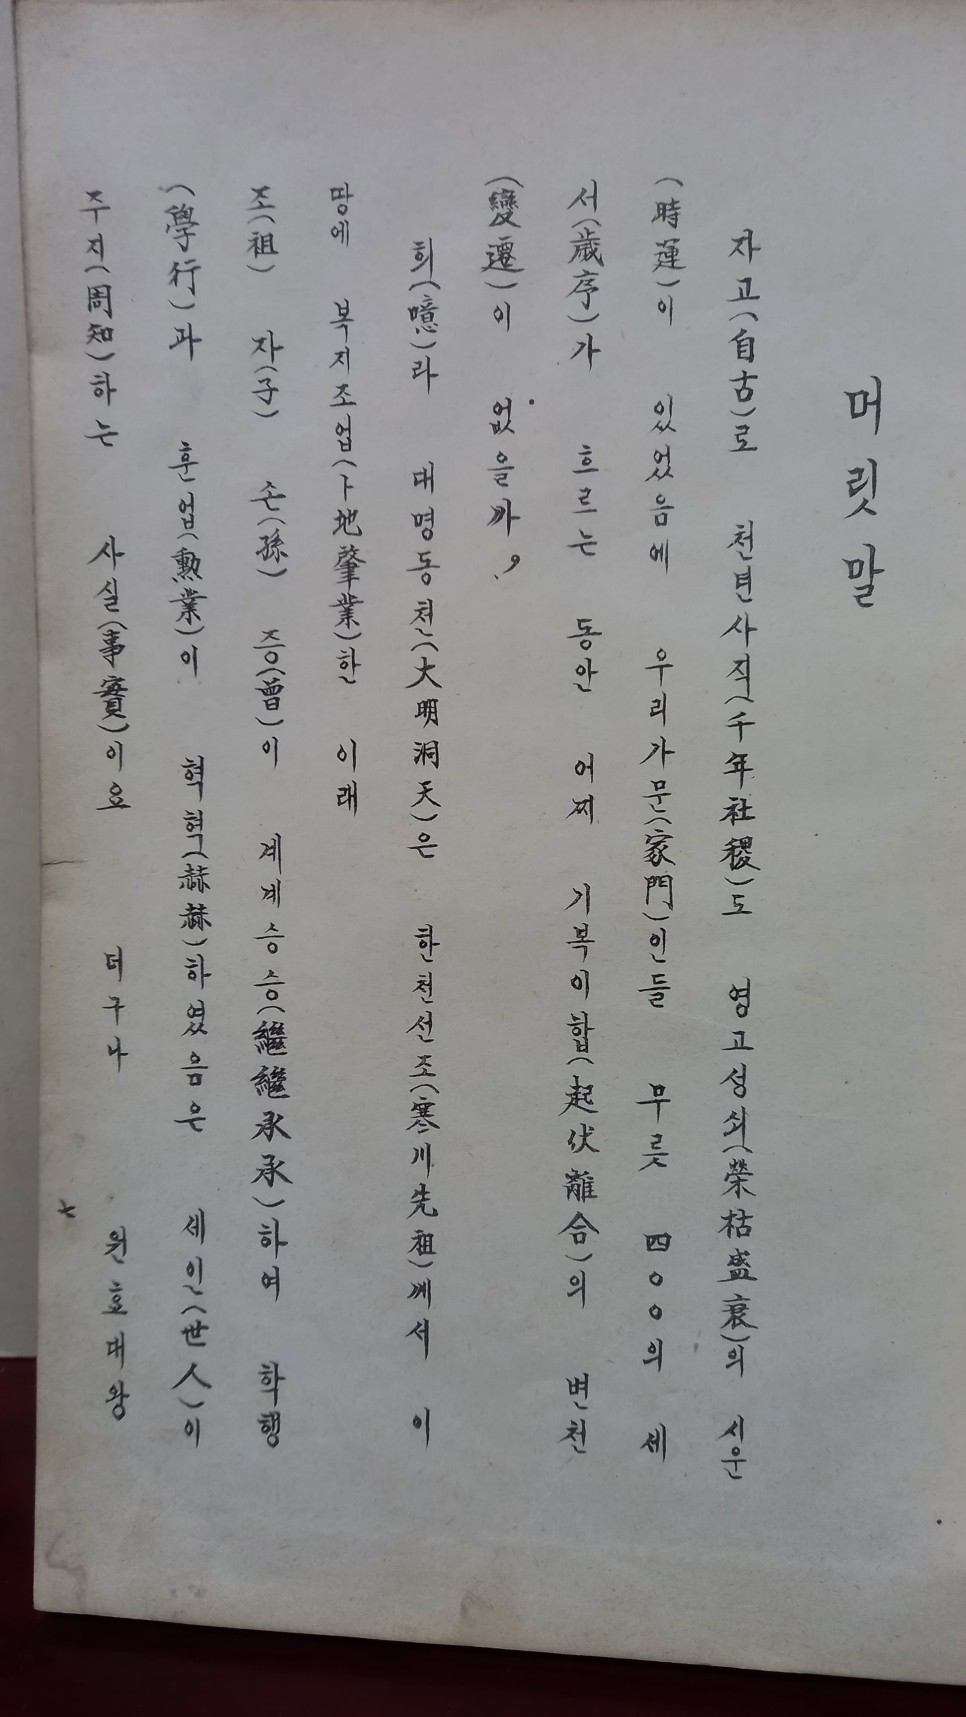 머릿말
자고(自古)로 천년사직(千年社稷)도 영고성쇠(榮枯盛衰)의 시운
(時運)이 있었음에 우리가문(家門)인들 무릇 四○○의 세
서(歲序)가 흐르는 동안 어찌 기복이합(起伏離合)의 변천
(變遷)이 없을까,
희(噫)라 대명동천(大明洞天)은 한천선조(寒川先祖)께서 이
땅에 복지조업(卜地肇業)한 이래
조(祖) 자(子) 손(孫) 증(曾)이 계계승승(繼繼承承)하여 학행
(學行)과 훈업(勳業)이 혁혁(赫赫)하였음은 세인(世人)이
주지(周知)하는 사실(事實)이요 더구나 원호대왕
七